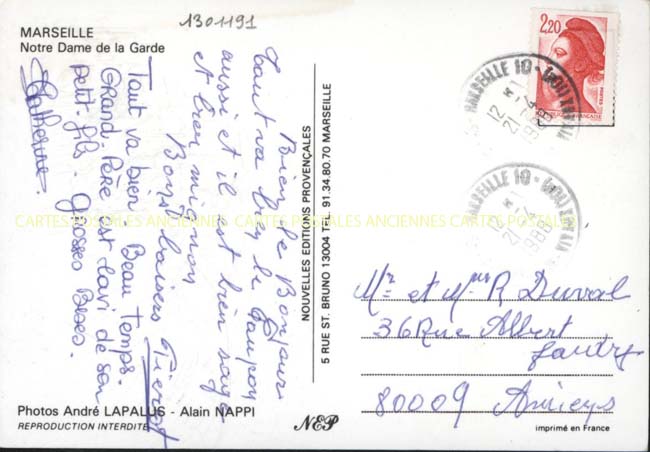 1301191
MARSEILLE
Notre Dame de la Garde
Bien le Bonjour
tout va bien le Poupon
aussi et il est bien sage
et bien mignon
Bons baisers
Tout va bien. Beau temps.
Grand-Père est ravi de son
petit-fils. Grosses Bises.
Catherine.
NOUVELLES EDITIONS PROVENÇALES
5 RUE ST. BRUNO 13004 TEL. 91.34.80.70 MARSEILLE
2,20
MARSEILLE 10
12 H
21-4
1988
MARSEILLE 10
12 H
21-4
1988
Mr et Mme R Duval
36 Rue Albert
80009 Amiens
CARTES POSTALES ANCIENNES CARTES POSTALES ANCIENNES CARTES POSTALES
Photos André LAPALUS - Alain NAPPI
REPRODUCTION INTERDITE
NEP
imprimé en France